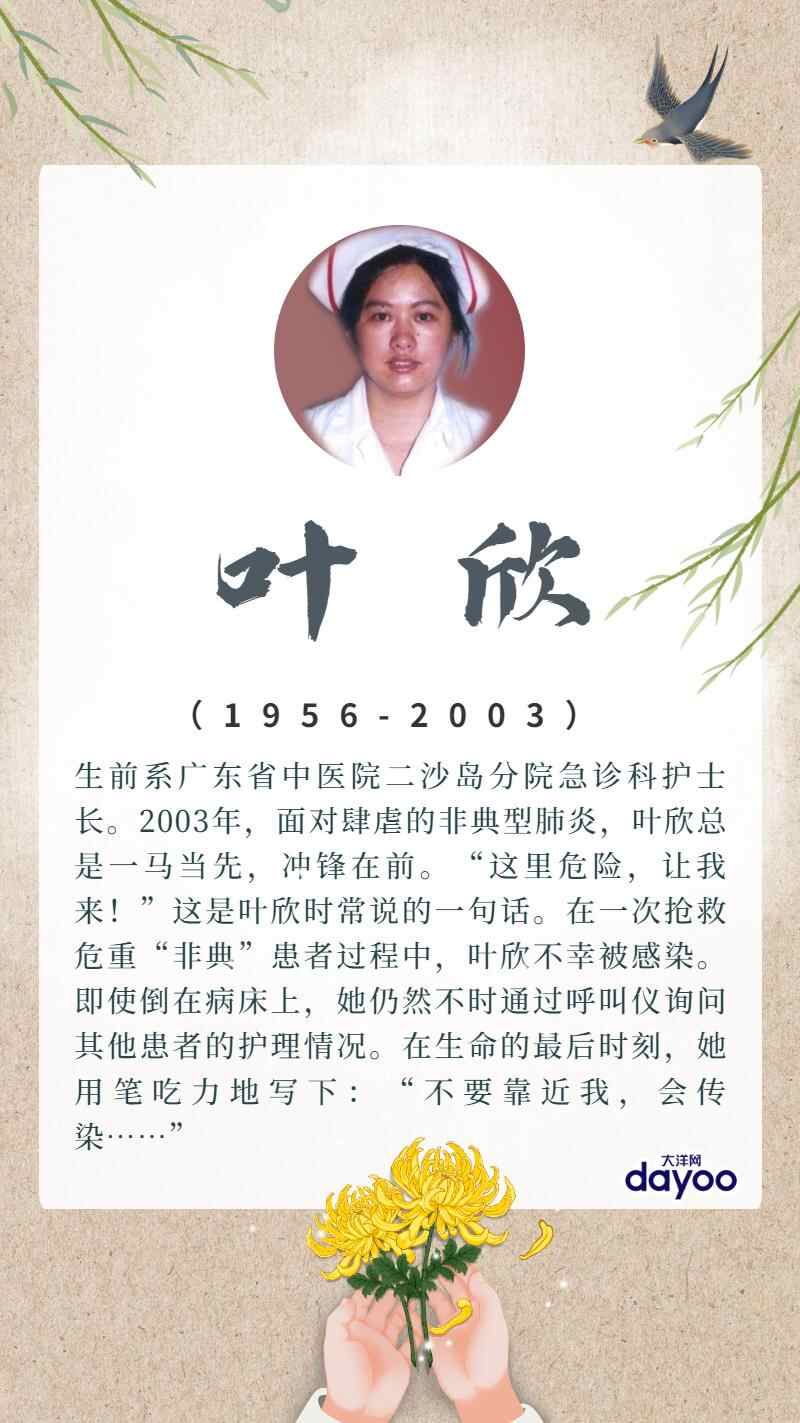 叶 欣
（1956-2003）
生前系广东省中医院二沙岛分院急诊科护士
长。2003年，面对肆虐的非典型肺炎，叶欣总
是一马当先，冲锋在前。“这里危险，让我
来！”这是叶欣时常说的一句话。在一次抢救
危重“非典”患者过程中，叶欣不幸被感染。
即使倒在病床上，她仍然不时通过呼叫仪询问
其他患者的护理情况。在生命的最后时刻，她
用笔吃力地写下：“不要靠近我，会传
染……”
大洋网
dayoo